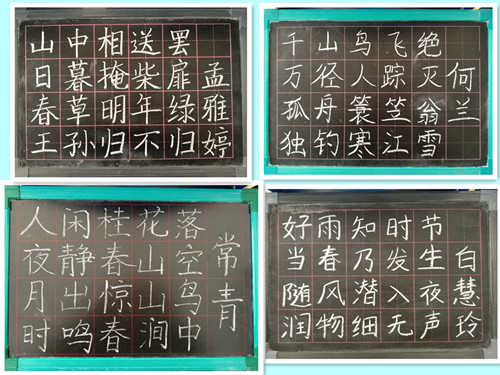 山中相送罢
日暮掩柴扉
春草明年绿
王孙归不归
孟雅婷
千山鸟飞绝
万径人踪灭
孤舟簑笠翁
独钓寒江雪
何兰
人闲桂花落
夜静春山空
月出惊山鸟
时鸣春涧中
常青
好雨知时节
当春乃发生
随风潜入夜
润物细无声
白慧玲